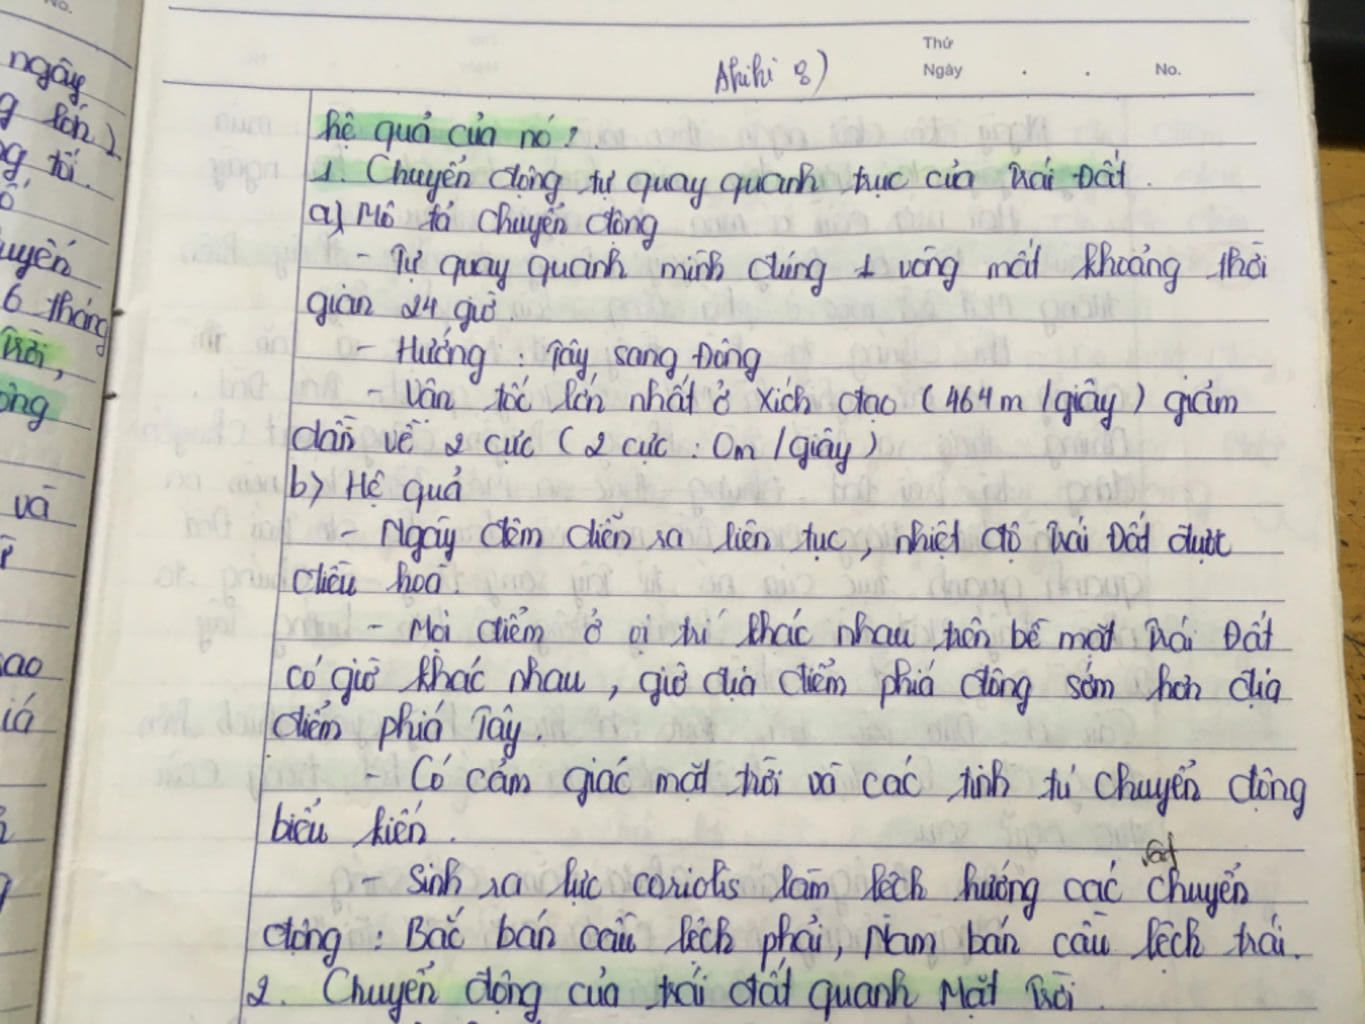 No.
Thứ
Ngày . . No.
Ahihi 8)
ngày
g lớn
g tối.
uyển
6 tháng
Trời,
ông
và
sao
iá
hệ quả của nó :
1. Chuyển động tự quay quanh trục của Trái Đất.
a) Mô tả chuyển động
- Tự quay quanh mình đúng 1 vòng mất khoảng thời
gian 24 giờ.
- Hướng : Tây sang Đông
- Vận tốc lớn nhất ở Xích đạo (464m/giây) giảm
dần về 2 cực (2 cực : 0m/giây)
b) Hệ quả
- Ngày đêm diễn ra liên tục, nhiệt độ Trái Đất được
điều hoà.
- Mỗi điểm ở vị trí khác nhau trên bề mặt Trái Đất
có giờ khác nhau, giờ địa điểm phía đông sớm hơn địa
điểm phía Tây.
- Có cảm giác mặt trời và các tinh tú chuyển động
biểu kiến.
vật
- Sinh ra lực coriolis làm lệch hướng các chuyển
động : Bắc bán cầu lệch phải, Nam bán cầu lệch trái.
2. Chuyển động của trái đất quanh Mặt Trời.